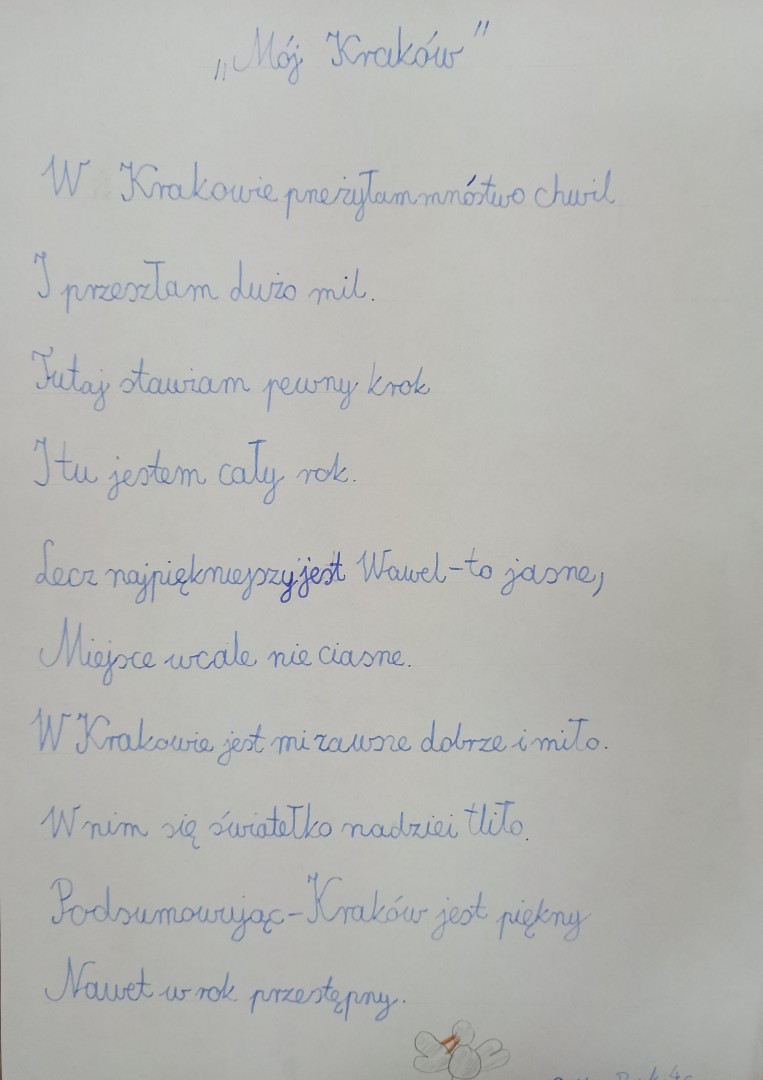 „Mój Kraków"
W Krakowie przeżyłam mnóstwo chwil
I przeszłam dużo mil.
Tutaj stawiam pewny krok
I tu jestem cały rok.
Lecz najpiękniejszy jest Wawel-to jasne,
Miejsce wcale nie ciasne.
W Krakowie jest mi zawsze dobrze i miło.
W nim się światełko nadziei tliło.
Podsumowując-Kraków jest piękny
Nawet w rok przestępny.